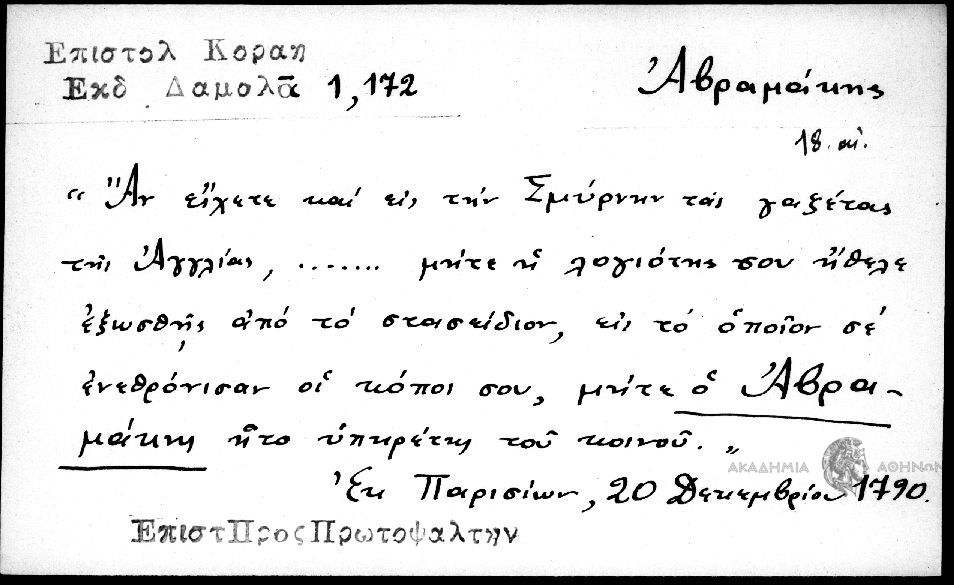 Επιστολ Κοραη
Εκδ Δαμαλᾶ 1,172
Ἀβραμάκης
18. αἰ.
“Ἂν εἴχετε καί εἰς τήν Σμύρνην τάς γαζέτας
τῆς Ἀγγλίας, ....... μήτε ἡ λογιότης σου ἤθελε
ἐξωσθῆς ἀπό τό στασείδιον, εἰς τό ὁποῖον σέ
ἐνεθρόνισαν οἱ κόποι σου, μήτε ὁ Ἀβρα-
μάκης ἦτο ὑπηρέτης τοῦ κοινοῦ.„
ΑΚΑΔΗΜΙΑ ΑΘΗΝΩΝ
Ἐκ Παρισίων, 20 Δεκεμβρίου 1790.
Επιστ Προς Πρωτοψαλτην